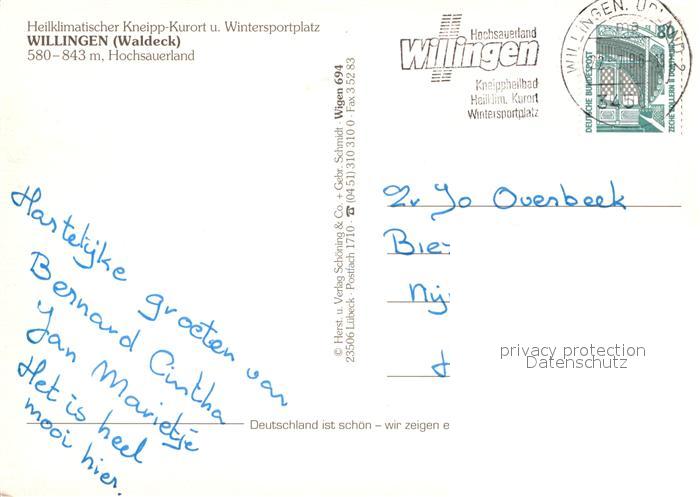 Heilklimatischer Kneipp-Kurort u. Wintersportplatz
WILLINGEN (Waldeck)
580–843 m, Hochsauerland
Hochsauerland
Willingen
Kneippheilbad
Heilklim. Kurort
Wintersportplatz
WILLINGEN, UPLAND 2
80
DEUTSCHE BUNDESPOST
ZECHE ZOLLERN II DORTMUND
© Herst. u. Verlag Schöning & Co. + Gebr. Schmidt · Wigen 694
23506 Lübeck · Postfach 1710 · ☎ (04 51) 310 310 0 · Fax 3 52 83
Hartelijke groeten van
Bernard Cintha
Jan Marietje
Het is heel
mooi hier.
2v Jo Overbeek
Bre-
Nij
privacy protection
Datenschutz
Deutschland ist schön – wir zeigen e